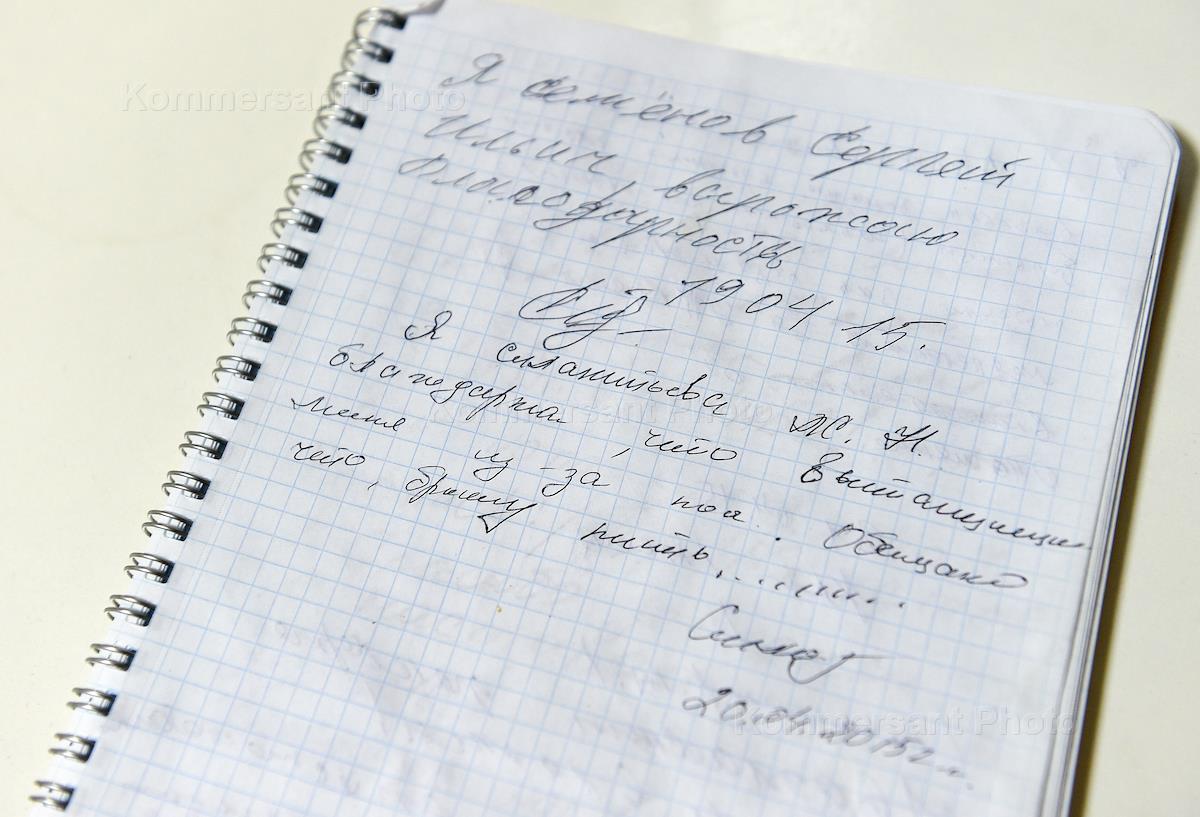 Я Семёнов Сергей
Ильич, выражаю
Благодарность
19 04 15.
Я Силантьева Ж. Н.
благодарна, что вытащили
меня из-за пол. Обещаю
что, брошу пить, ........
20.04.2015г.
Kommersant Photo
Kommersant Photo
Kommersant Photo